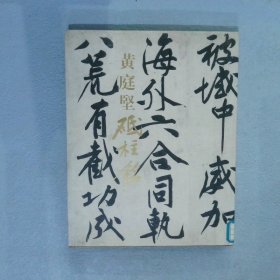 被域中威加
海外六合同軌
八荒有截功成
黄庭堅
砥柱銘